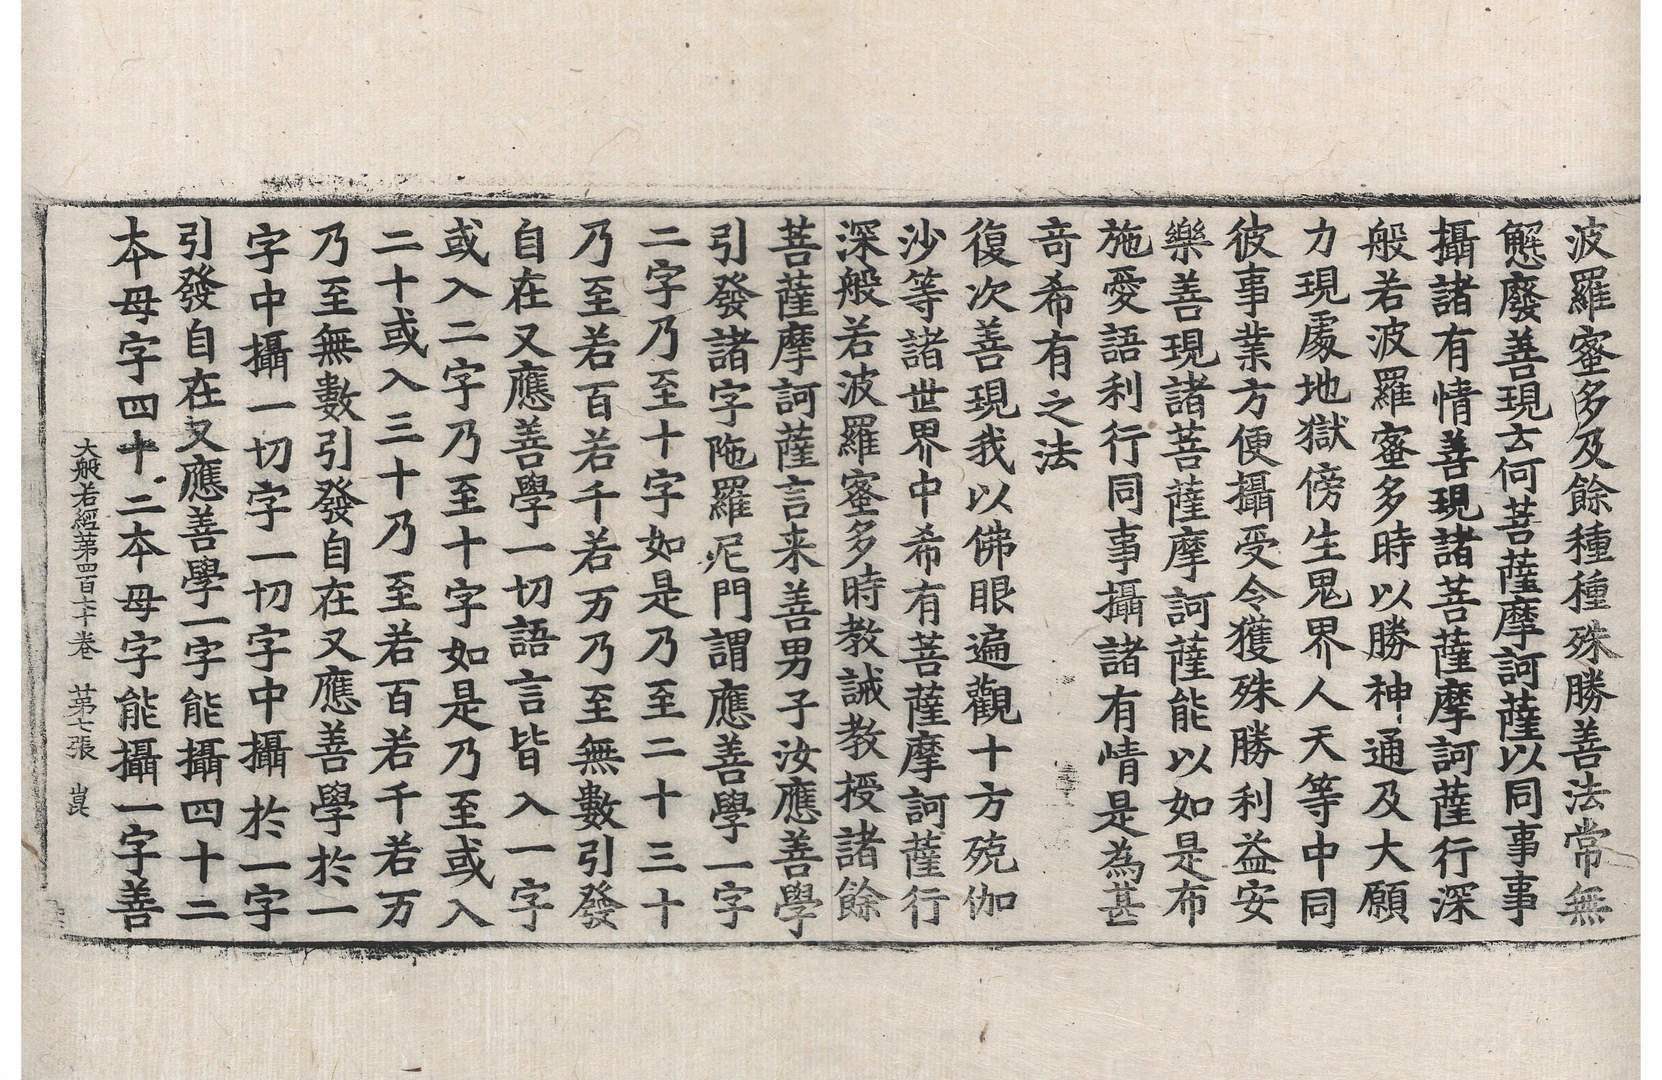 波羅蜜多及餘種種殊勝善法常無
懈廢善現云何菩薩摩訶薩以同事事
攝諸有情善現諸菩薩摩訶薩行深
般若波羅蜜多時以勝神通及大願
力現處地獄傍生鬼界人天等中同
彼事業方便攝受令獲殊勝利益安
樂善現諸菩薩摩訶薩能以如是布
施愛語利行同事攝諸有情是為甚
竒希有之法
復次善現我以佛眼遍觀十方殑伽
沙等諸世界中希有菩薩摩訶薩行
深般若波羅蜜多時教誡教授諸餘
菩薩摩訶薩言来善男子汝應善學
引發諸字陁羅尼門謂應善學一字
二字乃至十字如是乃至二十三十
乃至若百若千若万乃至無數引發
自在又應善學一切語言皆入一字
或入二字乃至十字如是乃至或入
二十或入三十乃至若百若千若万
乃至無數引發自在又應善學於一
字中攝一切字一切字中攝於一字
引發自在又應善學一字能攝四十二
本母字四十二本母字能攝一字善
大般若經第四百六十卷 第七張 崑